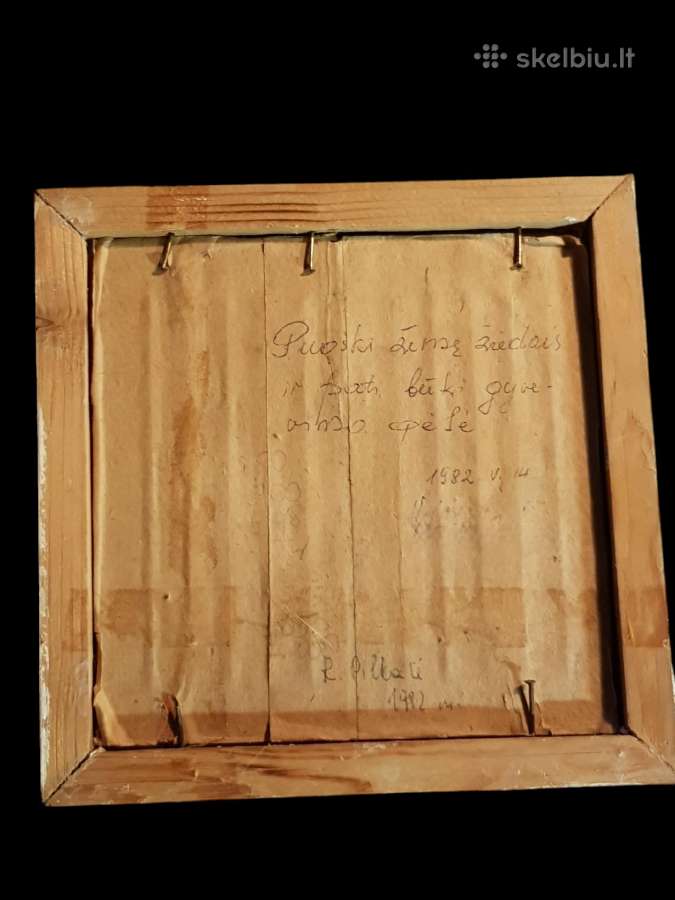 skelbiu.lt
Puoški žemę žiedais
ir pati būki gyve-
nimo gėlė
1982 V. 14
R.
1982 m.